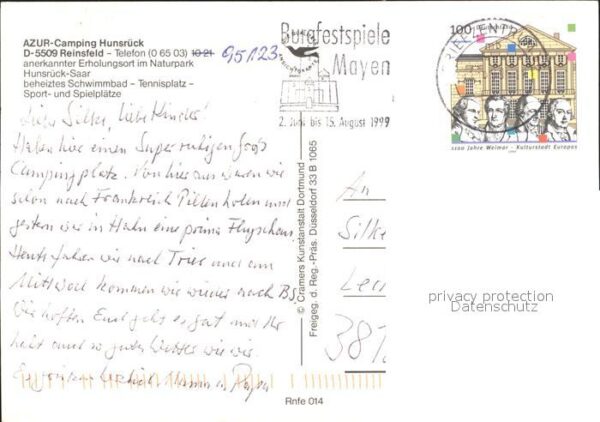 AZUR-Camping Hunsrück
D-5509 Reinsfeld - Telefon (0 65 03) 10 21 95123
anerkannter Erholungsort im Naturpark
Hunsrück-Saar
beheiztes Schwimmbad - Tennisplatz -
Sport- und Spielplätze
Liebe Silke, liebe Kinder!
Haben hier einen Super ruhigen
Campingplatz. Von hier aus waren wir
schon nach Frankreich Pillen holen und
gestern war in Hahn eine prima Flugschau.
Heute fahren wir nach Trier und am
Mittwoch kommen wir wieder nach BS.
Wir hoffen Euch geht es gut und Ihr
habt auch so gutes Wetter wie wir.
Mama u. Papa
Burgfestspiele
Mayen
2. Juni bis 15. August 1999
BRIEFZENTRUM
100
Deutschland
1100 Jahre Weimar - Kulturstadt Europas
© Cramers Kunstanstalt Dortmund
Freigeg. d. Reg.-Präs. Düsseldorf 33 B 1065
An
Silke
381
privacy protection
Datenschutz
Rnfe 014